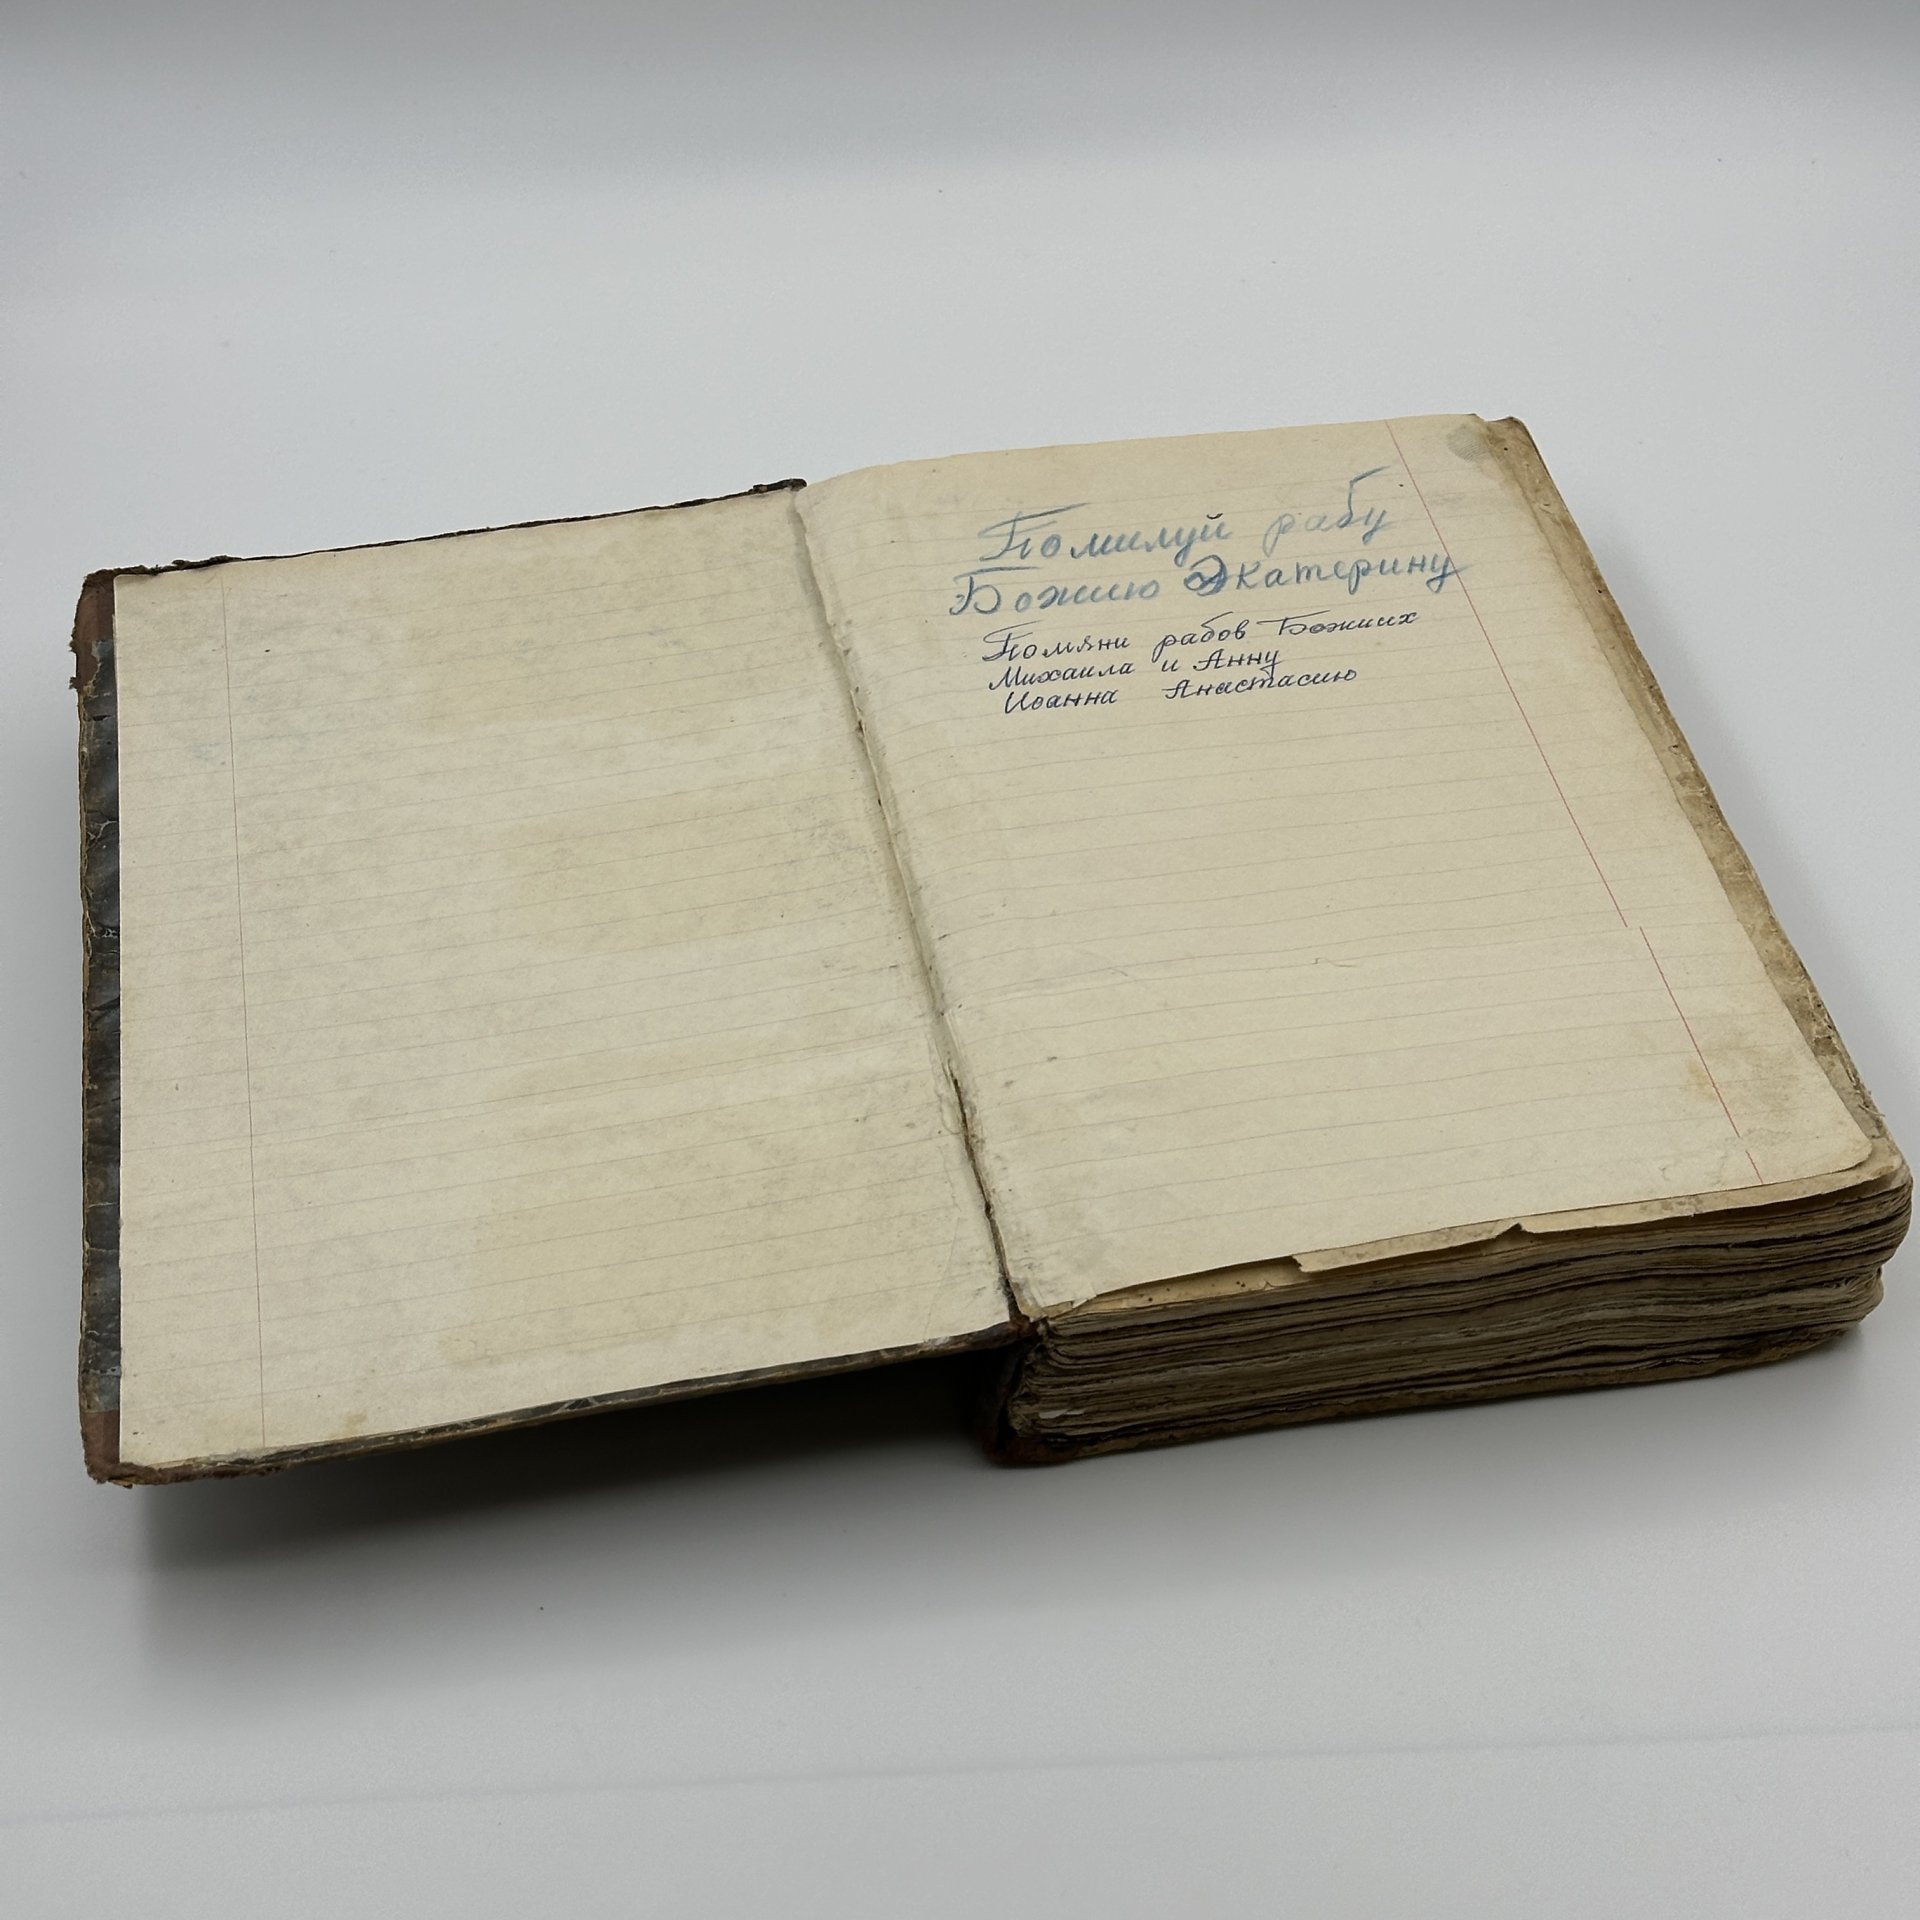 Помилуй рабу
Божию Экатерину
Помяни рабов Божиих
Михаила и Анну
Иоанна Анастасию